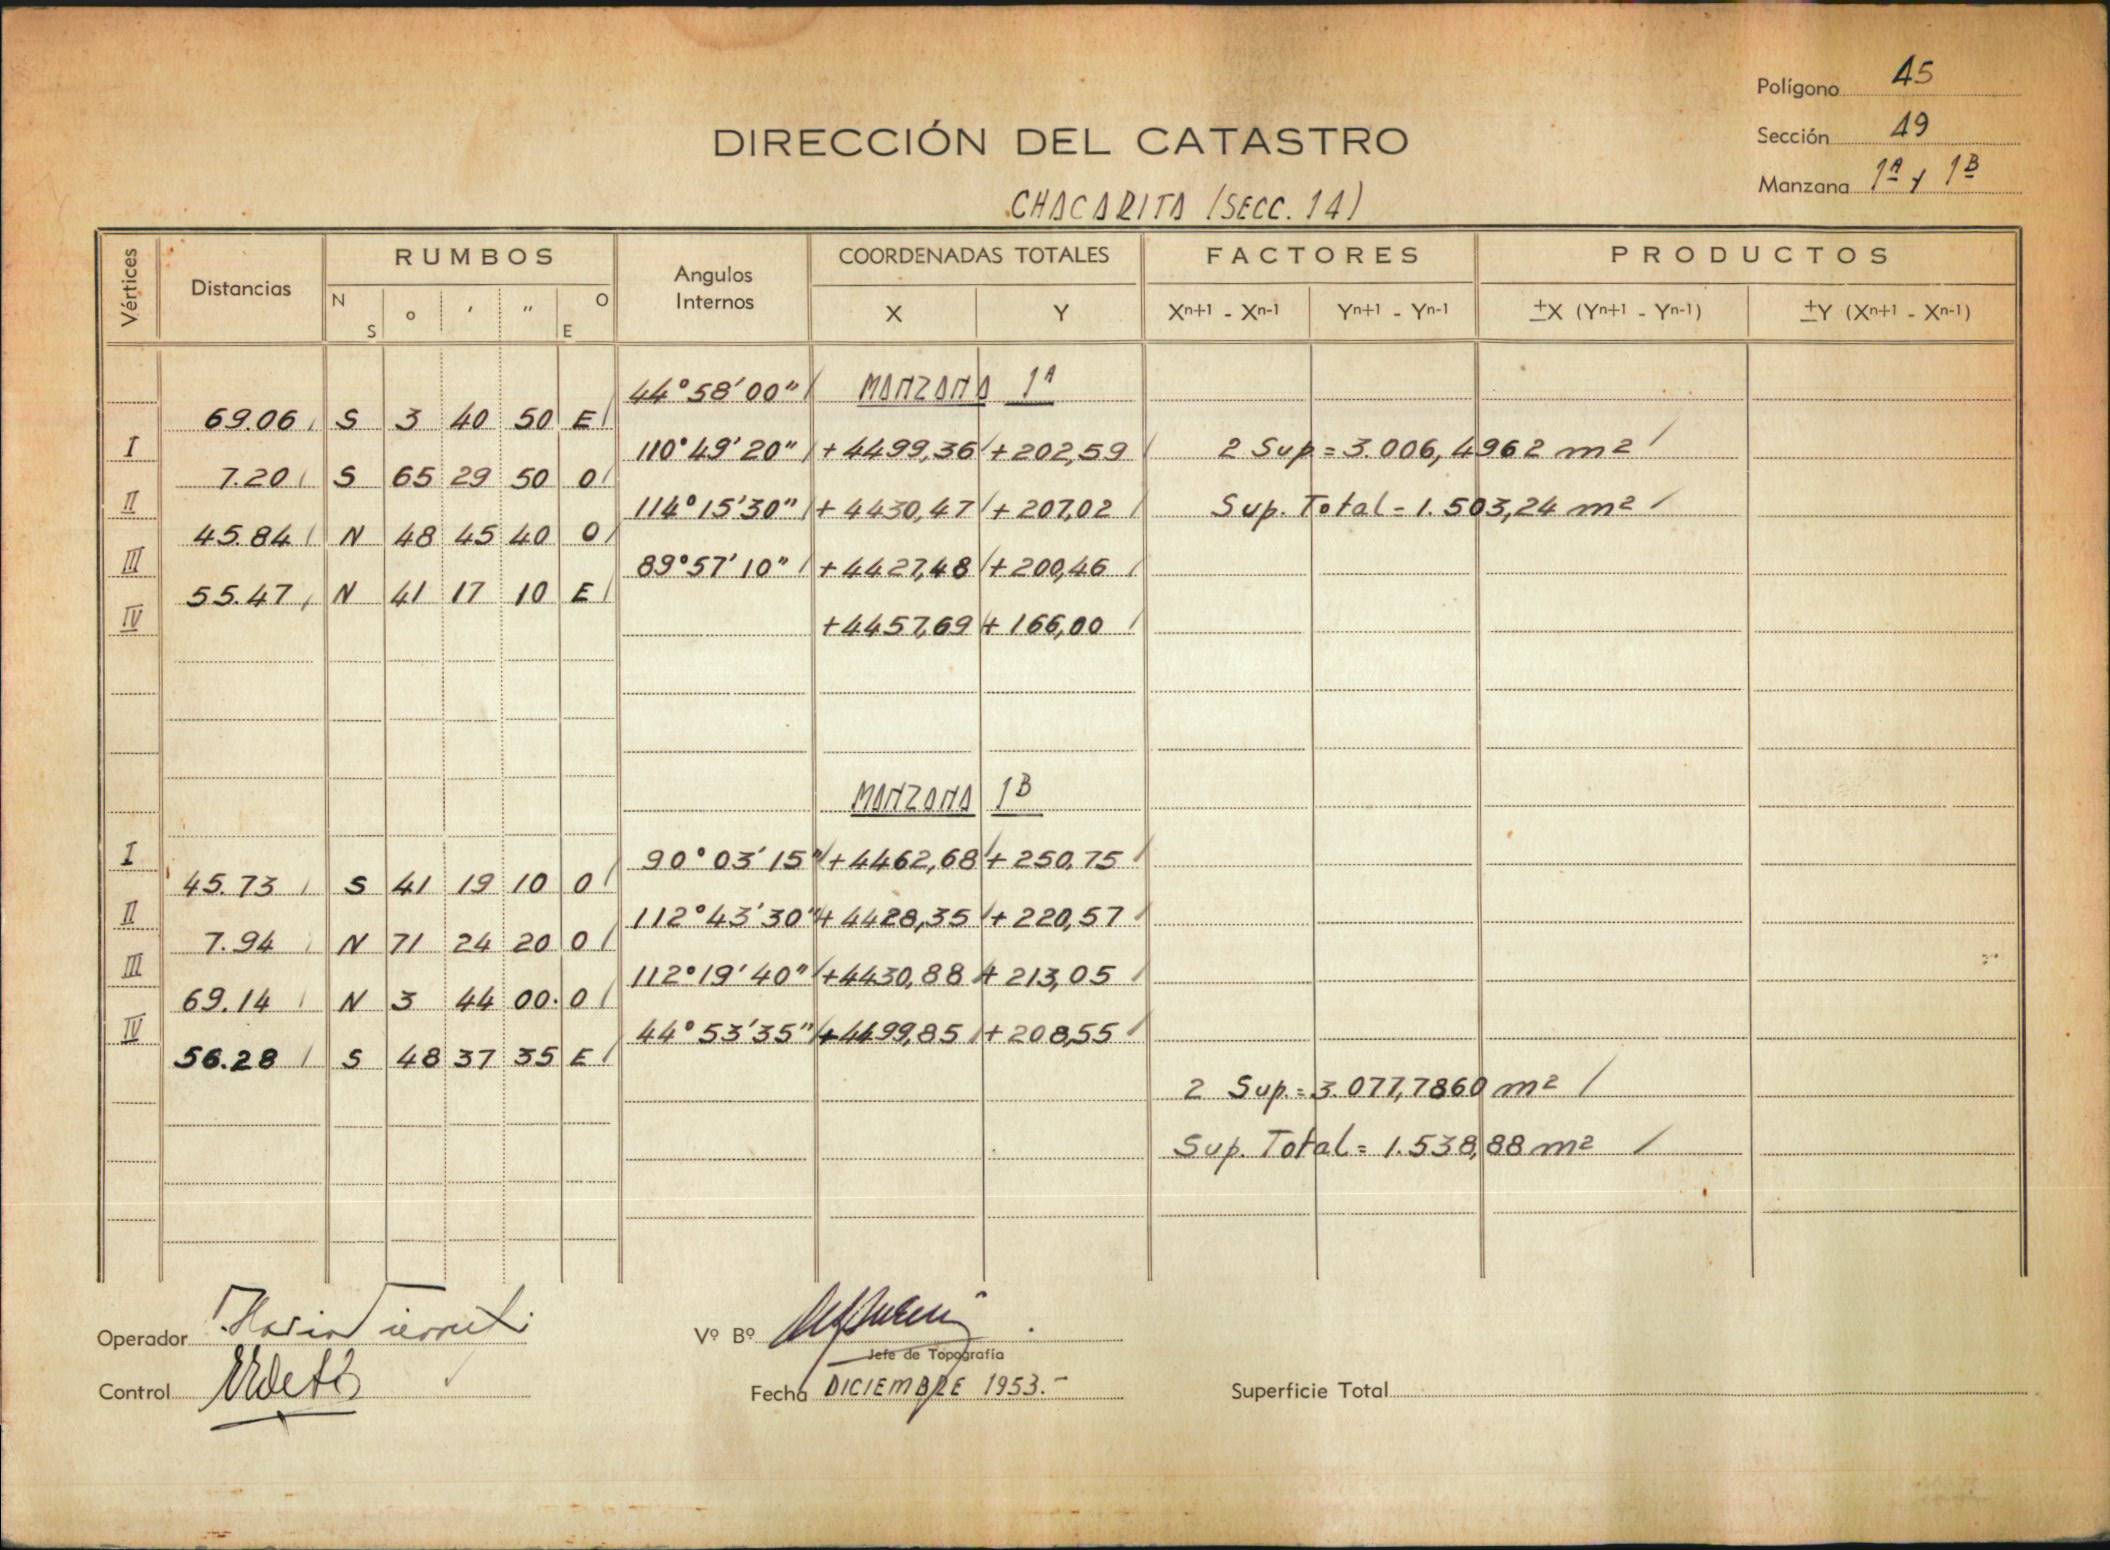 Polígono 45
DIRECCIÓN DEL CATASTRO
Sección 49
Manzana 1ª y 1ᴮ
CHACARITA (SECC. 14)
Vértices Distancias RUMBOS Angulos Internos COORDENADAS TOTALES FACTORES PRODUCTOS
N S ° ′ ″ O E X Y Xn+1 - Xn-1 Yn+1 - Yn-1 ±X (Yn+1 - Yn-1) ±Y (Xn+1 - Xn-1)
44°58'00" MANZANA 1ᴬ
69.06 S 3 40 50 E
I 110°49'20" +4499,36 +202,59 2 Sup = 3.006,4962 m²
7.20 S 65 29 50 O
II 114°15'30" +4430,47 +207,02 Sup. Total = 1.503,24 m²
45.84 N 48 45 40 O
III 89°57'10" +4427,48 +200,46
55.47 N 41 17 10 E
IV +4457,69 +166,00
MANZANA 1ᴮ
I 90°03'15" +4462,68 +250,75
45.73 S 41 19 10 O
II 112°43'30" +4428,35 +220,57
7.94 N 71 24 20 O
III 112°19'40" +4430,88 +213,05
69.14 N 3 44 00 O
IV 44°53'35" +4499,85 +208,55
56.28 S 48 37 35 E
2 Sup. = 3.077,7860 m²
Sup. Total = 1.538,88 m²
Operador
Vº Bº
Jefe de Topografía
Control
Fecha DICIEMBRE 1953.-
Superficie Total